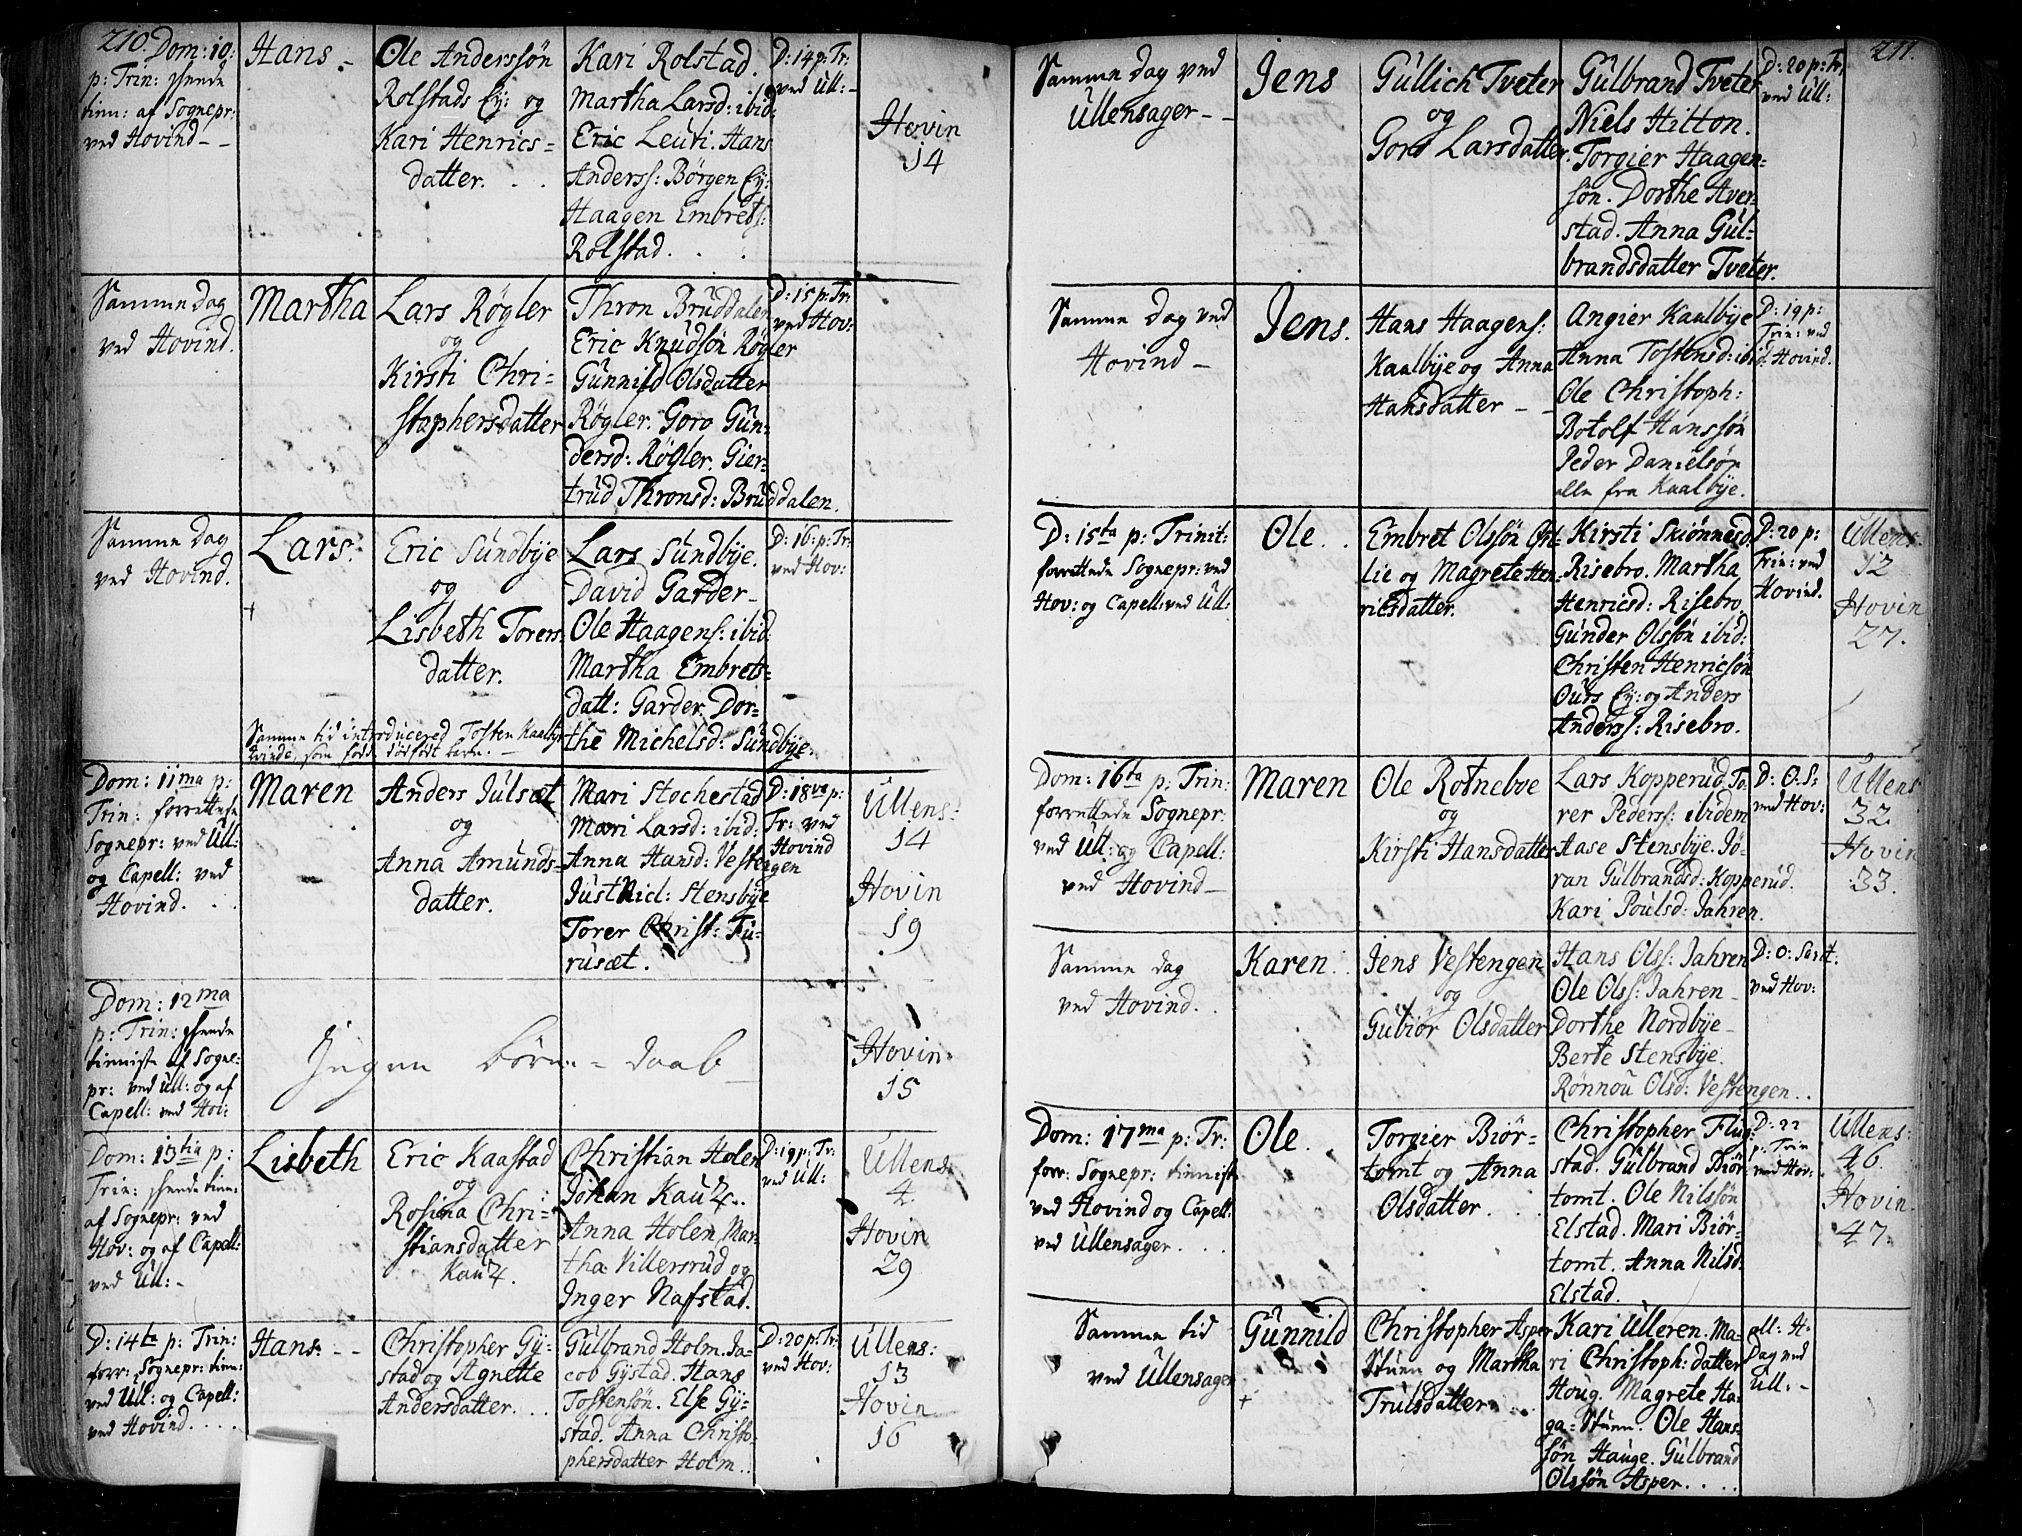 210. Dom: 10:
p: Trin: 
tien: af Sognepr:
ved Hovind - -
Hans -
Ole Anderssön
Rolstads Ey: og
Kari Henrics=
datter. . .
Kari Rolstad.
Martha Larsd: ibid:
Eric Leuti. Hans
Anderss: Börgen Ey:
Haagen Embrets:
Rolstad. . .
D: 14 p: Tr:
ved Ull: -
Hovin
14
Samme Dag
ved Hovind.
Martha
Lars Røgler
og
Kirsti Chri-
stophersdatter
Thron Bruddalen
Eric Knudsön Røgler
Gunnild Olsdatter
Røgler. Goro Gun-
dersd: Røgler. Gier-
trud Thronsd: Bruddalen.
D: 15 p: Tr:
ved Hov:
Samme Dag
ved Hovind.
Lars.
+
Eric Sundbye
og
Lisbeth Torers
datter.
Lars Sundbye.
David Garder-
Ole Haagens: ibid:
Martha Embrets-
datt: Garder. Dor-
the Michelsd: Sundbye.
D: 16: p: Tr:
ved Hov:
Samme tid introducered Tosten Kaalbye
qvinde, som fødde dödfödt barn. -
Dom: 11ma p:
Trin: forrettede
Sognepr: ved Ull:
og Capell: ved
Hovind. . .
Maren
Anders Julsæt
og
Anna Amunds-
datter.
Mari Stochestad
Mari Larsd: ibid:
Anna Hansd: Vestengen
Just Nicl: Stensbye
Torer Christ: Fu-
rusæt.
D: 18 p:
Tr: ved
Hovind
Ullens:
14
Hovin
19
Dom: 12ma
p: Trin: 
tieniste af Sogne-
pr: ved Ull: og af
Capell: ved Hov:
Ingen börne-daab
Hovin
15
Dom: 13tia p:
Trin: tien:
af Sognepr: ved
Hov: og af Capell:
ved Ull: -
Lisbeth
Eric Kaastad
og
Rosina Chri-
stiansdatter
Kautz.
Christian Holen
Johan Kautz.
Anna Holen, Mar-
tha Villersrud og
Inger Nafstad.
D: 19 p: Tr:
ved Ull:
Ullens:
4.
Hovin
29
D: 14ta p: Trin:
forr: Sognepr: tien:
ved Ull: og Capell:
ved Hovind. . . .
Hans. - -
Christopher Gy-
stad og Agnette
Andersdatter. . .
Gulbrand Holm. Ja-
cob Gystad. Hans
Tostensön. Else Gy-
stad. Anna Christo-
phersdatter Holm..
D: 20 p: Tr:
ved Hov:
Ullens:
13
Hovin
16
211.
Samme Dag ved
Ullensager - -
Jens
Gullich Tveter
og
Goro Larsdatter.
Gulbrand Tveter
Niels Hilton.
Torgier Haagen-
sön. Dorthe Aver-
stad. Anna Gul-
brandsdatter Tveter.
D: 20 p: Tr:
ved Ull:
Samme Dag ved
Hovind -
Jens.
Hans Haagens:
Kaalbye og Anna
Hansdatter - -
Angier Kaalbye
Anna Tostensd: ibid:
Ole Christoph:
Botolf Hanssön
Peder Danielsön
alle fra Kaalbye.
D: 19 p:
Trin: ved
Hovind.
D: 15ta p: Trinit:
forrettede Sognepr: ved
Hov: og Capell: ved Ull:
Ole. .
Embret Olssön
lie og Magrete Hen-
ricsdatter.
Kirsti Skiönnesd.
Risebro. Martha
Henricsd: Risebro
Gunder Olssön ibid:
Christen Henricsön
Ours Ey: og Anders
Anderss: Risebro.
D: 20 p:
Trin: ved
Hovind.
Ullens:
12
Hovin
27.
Dom: 16ta p: Trin:
forrettede Sognepr:
ved Ull: og Capell:
ved Hovind -
Maren
Ole Rotneboe
og
Kirsti Hansdatter
Lars Kopperud. To-
rer Peders: ibidem
Aase Stensbye. Jö-
ran Gulbrandsd: Kopperud.
Kari Poulsd: Jahren.
D: O. S:
ved Hov:
Ullens
32.
Hovin
33.
Samme dag
ved Hovind. .
Karen. .
Jens Vestengen
og
Gubiör Olsdatter
Hans Olss: Jahren
Ole Olss: Jahren -
Dorthe Nordbye -
Berte Stensbye.
Rönnou Olsd: Vestengen. .
D: O: Sanct:
ved Hov:
Dom: 17ma p: Tr:
forr: Sognepr: tienist:
ved Hovind og Capell:
ved Ullensager. . .
Ole.
Torgier Biör-
tomt og Anna
Olsdatter. . .
Christopher Flug-
stad. Gulbrand Biör
tomt. Ole Nilssön
Elstad. Mari Biör-
tomt. Anna Nilsd:
Elstad.
D: 22
p: Trin
ved Hov:
Ullens:
46.
Hovin.
47.
Samme tid
ved Ullensager
Gunnild
+
Christopher Asper
Stuen og Martha
Trulsdatter. . .
Kari Ulleren. Ma-
ri Christoph: datter
Houg. Magrete Ha-
ga-Stuen. Ole Hans-
sön Hauge. Gulbrand
Olssön Asper. . . .
all: H:
Dag ved
Ull: -